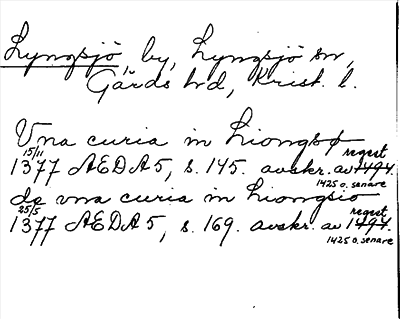 Lyngsjö, by, Lyngsjö sn,
Gärds hd, Krist. l.
Vna curia in Liongsø
15/11 regest
1377 AEDA 5, s. 145. avskr. av 1494.
1425 o. senare
de vna curia in Liongsio
25/5 regest
1377 AEDA 5, s. 169. avskr. av 1494.
1425 o. senare